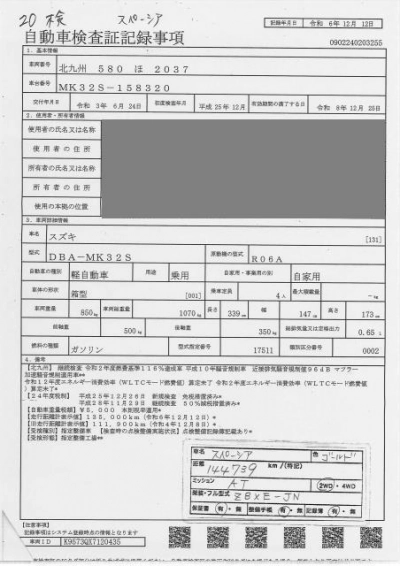 20 検 スペーシア
記録年月日 令和 6年 12月 12日
自動車検査証記録事項
0902240203255
1. 基本情報
車両番号 北九州 580 ほ 2037
車台番号 MK32S-158320
交付年月日 令和 3年 6月 24日 初度検査年月 平成 25年 12月 有効期間の満了する日 令和 8年 12月 25日
2. 使用者・所有者情報
使用者の氏名又は名称
使用者の住所
所有者の氏名又は名称
所有者の住所
使用の本拠の位置
3. 車両詳細情報
車名 スズキ [131]
型式 DBA-MK32S 原動機の型式 R06A
自動車の種別 軽自動車 用途 乗用 自家用・事業用の別 自家用
車体の形状 箱型 [001] 乗車定員 4人 最大積載量 -kg
車両重量 850kg 車両総重量 1070kg 長さ 339cm 幅 147cm 高さ 173cm
前軸重 500kg 後軸重 350kg 総排気量又は定格出力 0.65L
燃料の種類 ガソリン 型式指定番号 17511 類別区分番号 0002
4. 備考
【北九州】 継続検査 令和2年度燃費基準116%達成車 平成10年騒音規制車 近接排気騒音規制値96dB マフラー
加速騒音規制適用車**
令和12年度エネルギー消費効率(WLTCモード燃費値)算定未了 令和2年度エネルギー消費効率(WLTCモード燃費値
)算定未了*
【24年度税制】 平成25年12月26日 新規検査 免税措置済み*
平成28年11月29日 継続検査 50%減税措置済み*
【自動車重量税額】¥5,000 本則税率適用*
【走行距離計表示値】135,000km(令和6年12月12日)*
【旧走行距離計表示値】111,900km(令和4年12月8日)*
【受検種別】指定整備車 【検査時の点検整備実施状況】点検整備記録簿記載あり*
【受検形態】指定整備工場**
車名 スペーシア 色 ゴールド
距離 144739 km/(特記)
ミッション AT 2WD・4WD
車検・フル型式 ZBXE-JN
保証書 有・無 整備手帳 有・無 記録簿 有・無
【注意事項】
記録事項はシステム登録時点の情報となります
車両ID K9573QX712043S